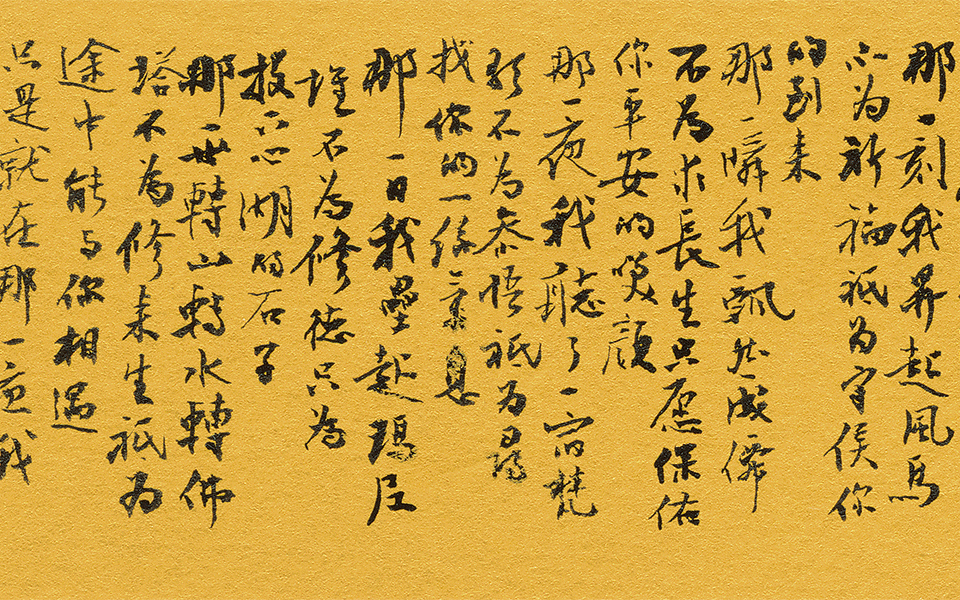 那一刻我昇起風馬
不为祈福祗为守侯你
的到来
那一瞬我飘然成僊
不為求長生只愿保佑
你平安的笑顔
那一夜我聽了一宿梵
歌不为参悟祗为尋
找你的一絲氣息
那一日我壘起瑪尼
堆不為修德只為
投下心湖的石子
那一世轉山轉水轉佛
塔不為修来生祗为
途中能与你相遇
只是就在那一夜我